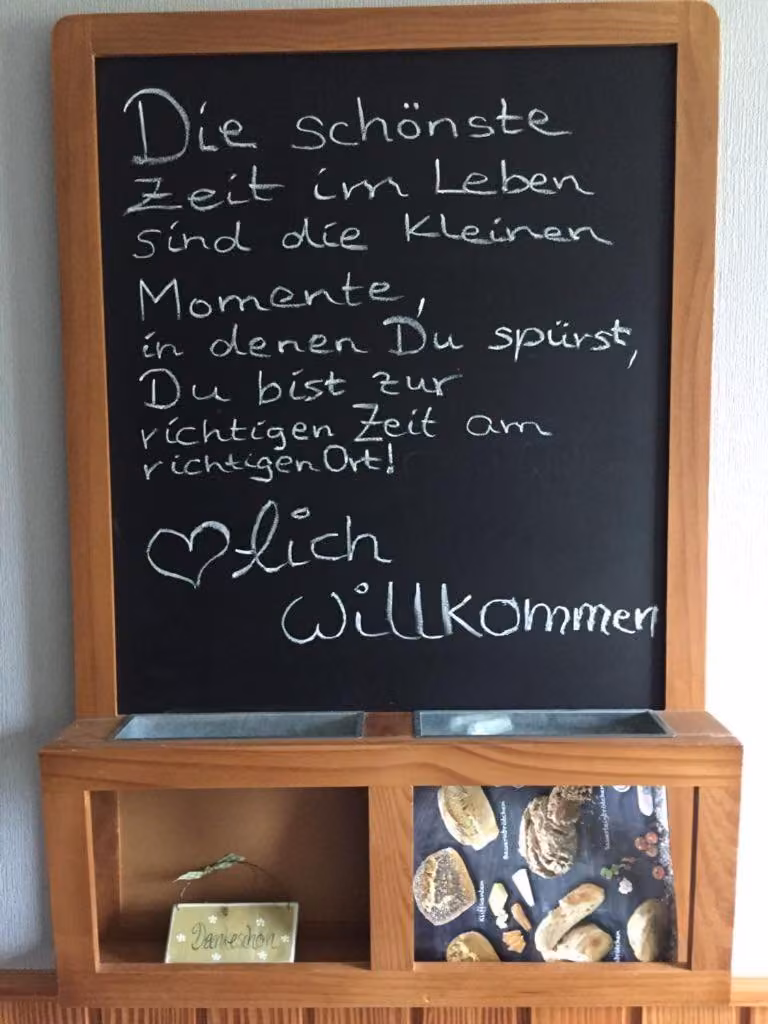 Die schönste
Zeit im Leben
sind die kleinen
Momente,
in denen Du spürst,
Du bist zur
richtigen Zeit am
richtigen Ort!
♡lich
willkommen
Dankeschön
Bauernbrötchen
Sauerteigbrötchen